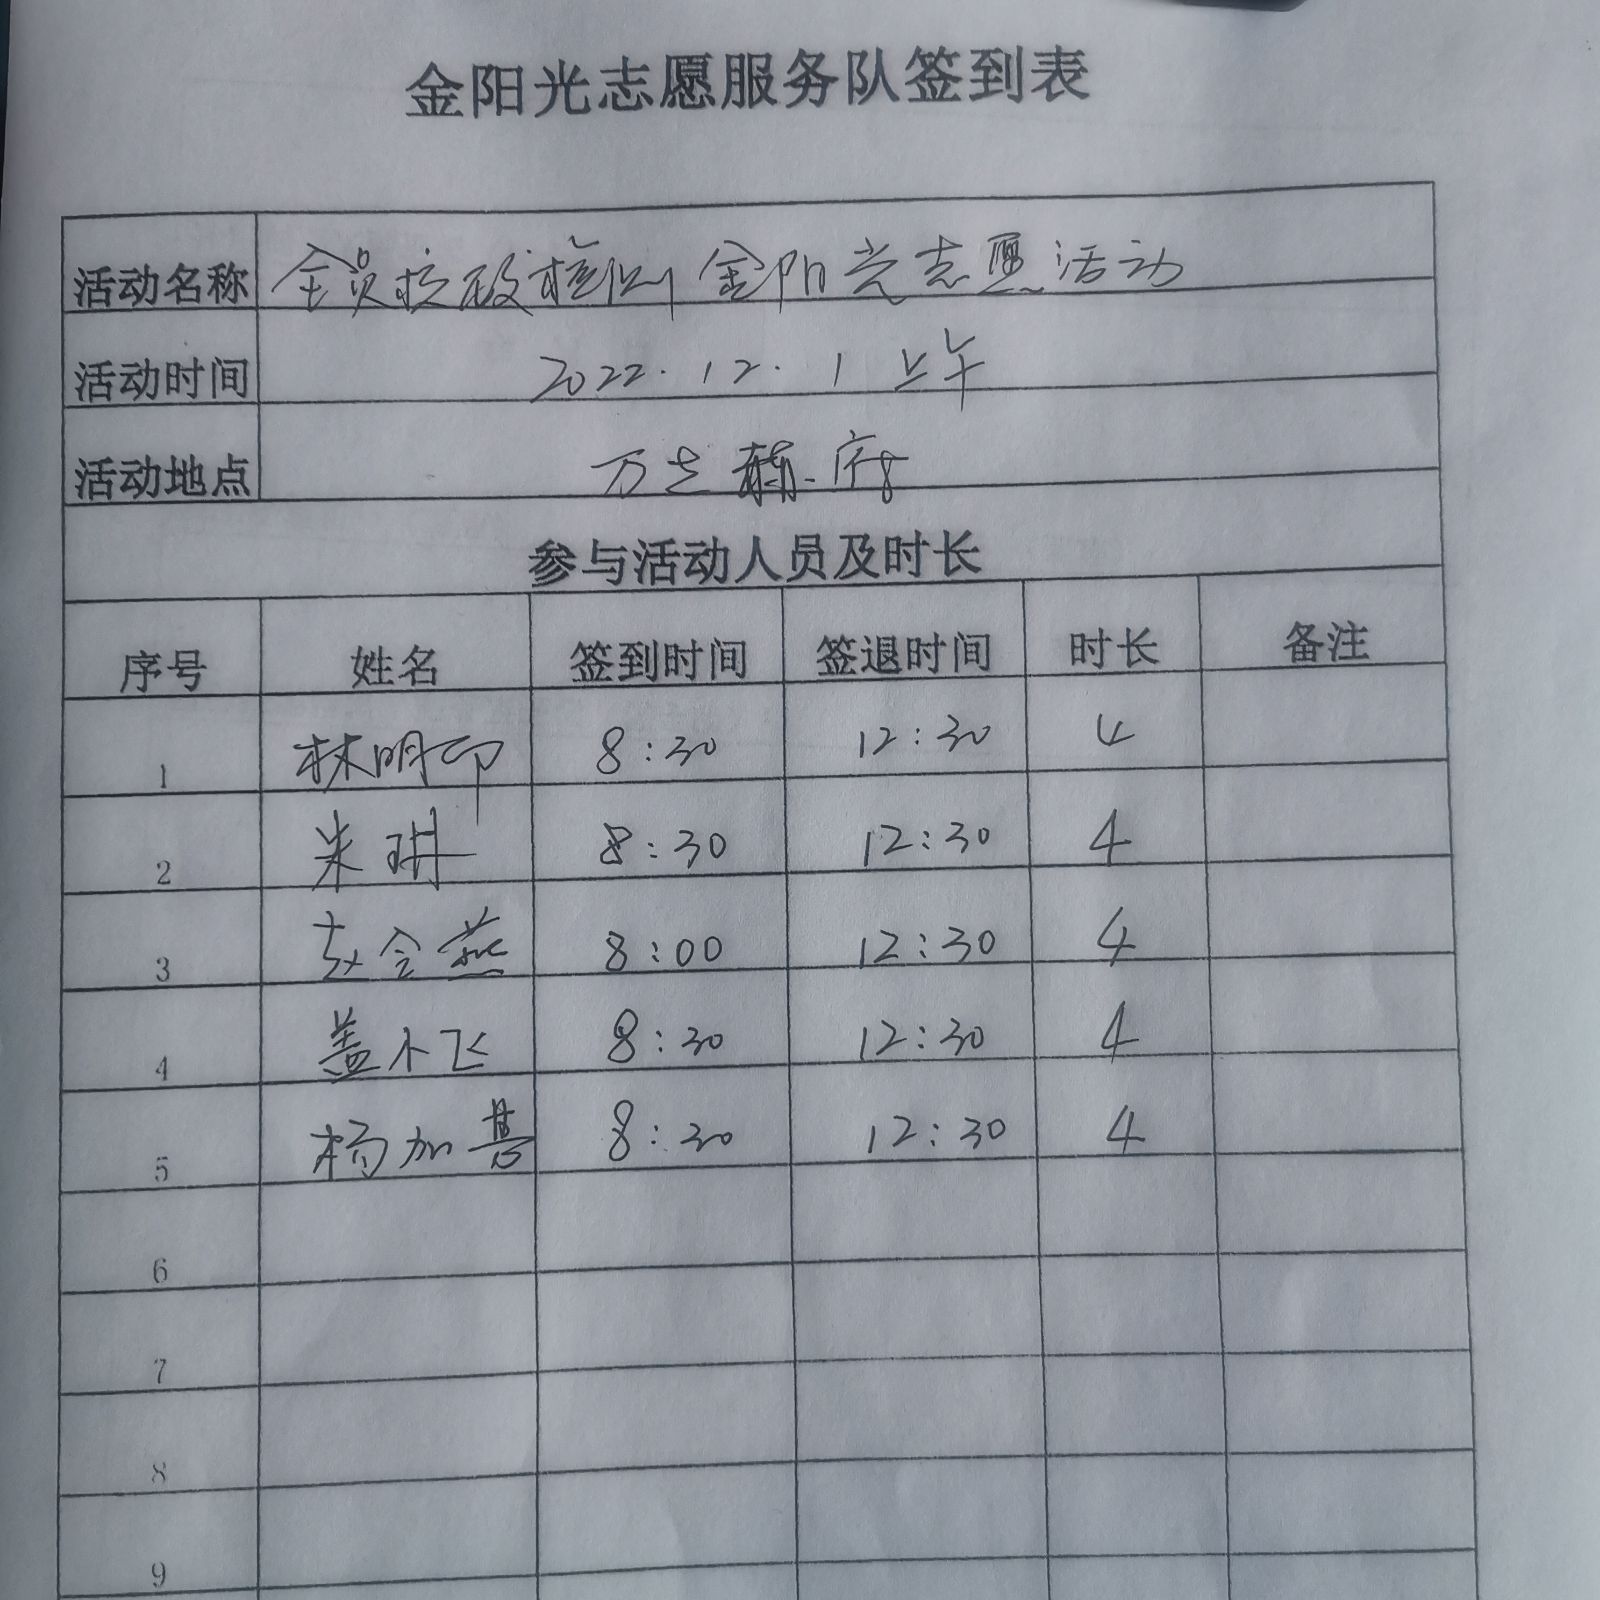 金阳光志愿服务队签到表
活动名称 全员核酸检测金阳光志愿活动
活动时间 2022.12.1 上午
活动地点 万志赫府
参与活动人员及时长
序号 姓名 签到时间 签退时间 时长 备注
1 林明印 8:30 12:30 4
2 朱琪 8:30 12:30 4
3 赵会燕 8:00 12:30 4
4 盖小飞 8:30 12:30 4
5 杨加善 8:30 12:30 4
6
7
8
9